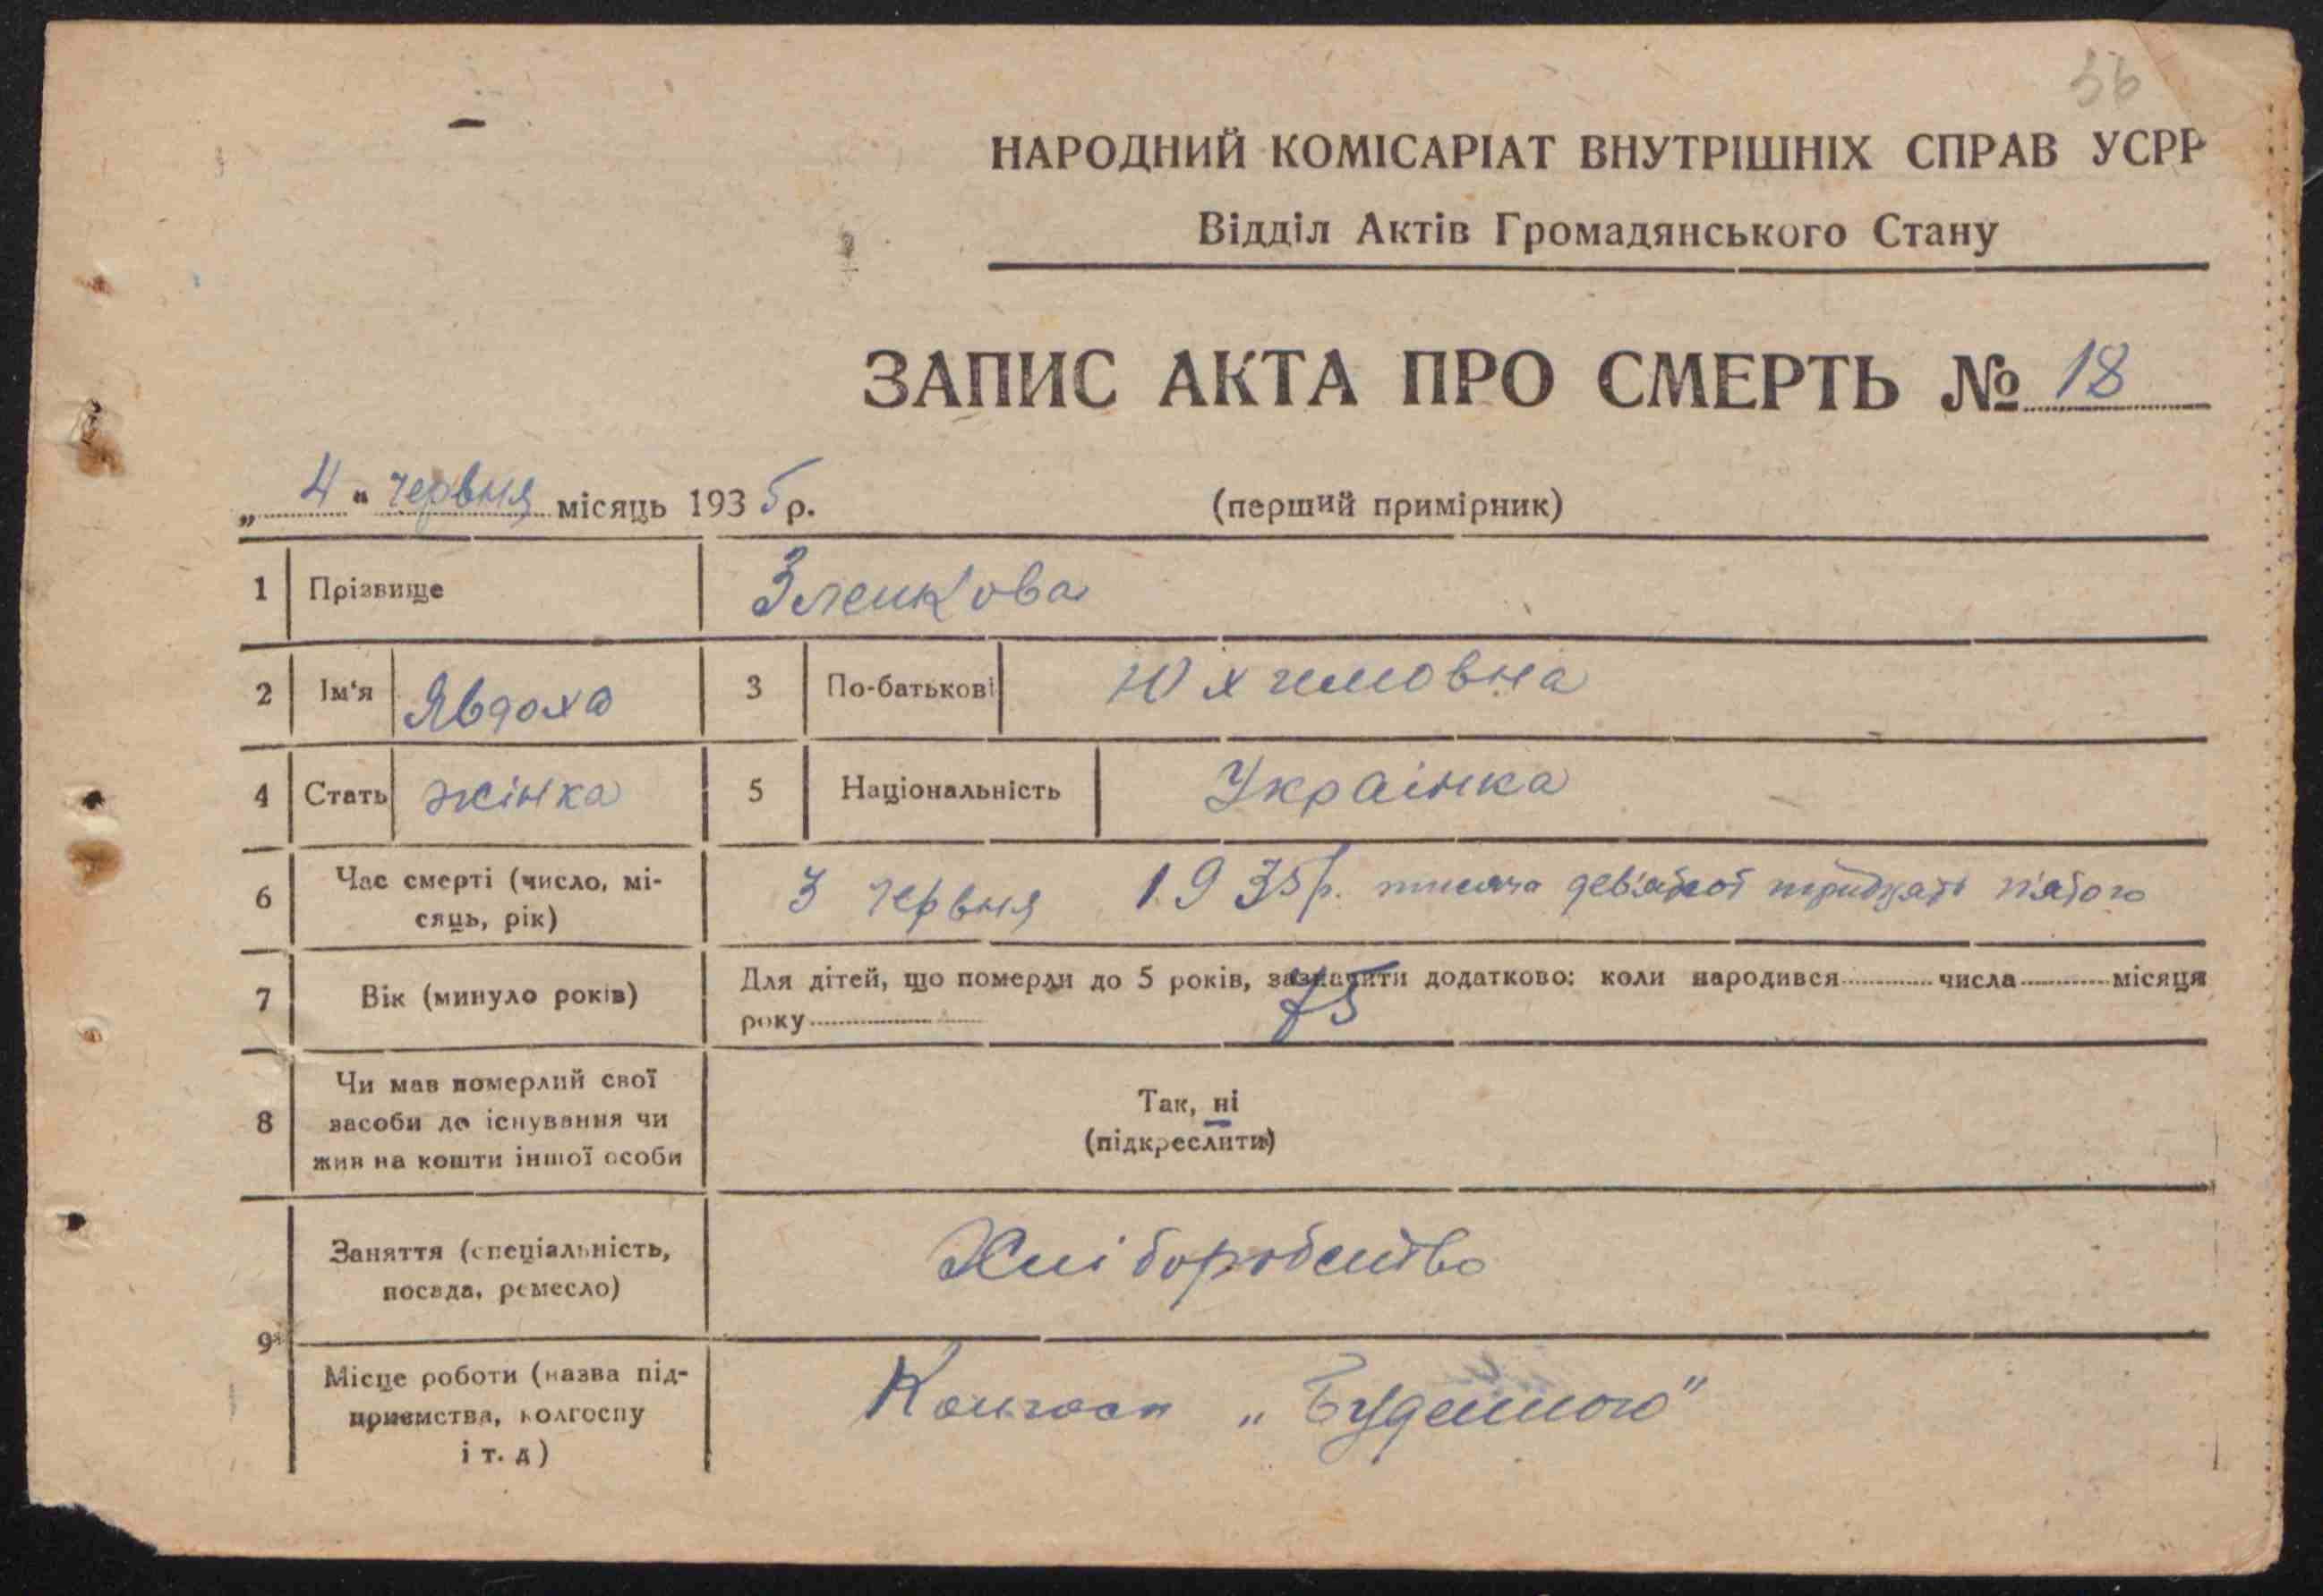 36
НАРОДНИЙ КОМІСАРІАТ ВНУТРІШНІХ СПРАВ УСРР
Відділ Актів Громадянського Стану
ЗАПИС АКТА ПРО СМЕРТЬ № 18
„ 4 “ червня місяць 1935 р.
(перший примірник)
1 Прізвище Зленкова
2 Ім'я Явдоха 3 По-батькові Юхимовна
4 Стать жінка 5 Національність Українка
6 Час смерті (число, мі-
сяць, рік) 3 червня 1935 р. тисяча дев'ятсот тридцять п'ятого
7 Вік (минуло років) Для дітей, що померли до 5 років, зазначити додатково: коли народився числа місяця
року 75
8 Чи мав померлий свої
засоби до існування чи
жив на кошти іншої особи
Так, ні
(підкреслити)
9 Заняття (спеціальність,
посада, ремесло) Хліборобство
Місце роботи (назва під-
приємства, колгоспу
і т. д) Колгосп „Буденного"